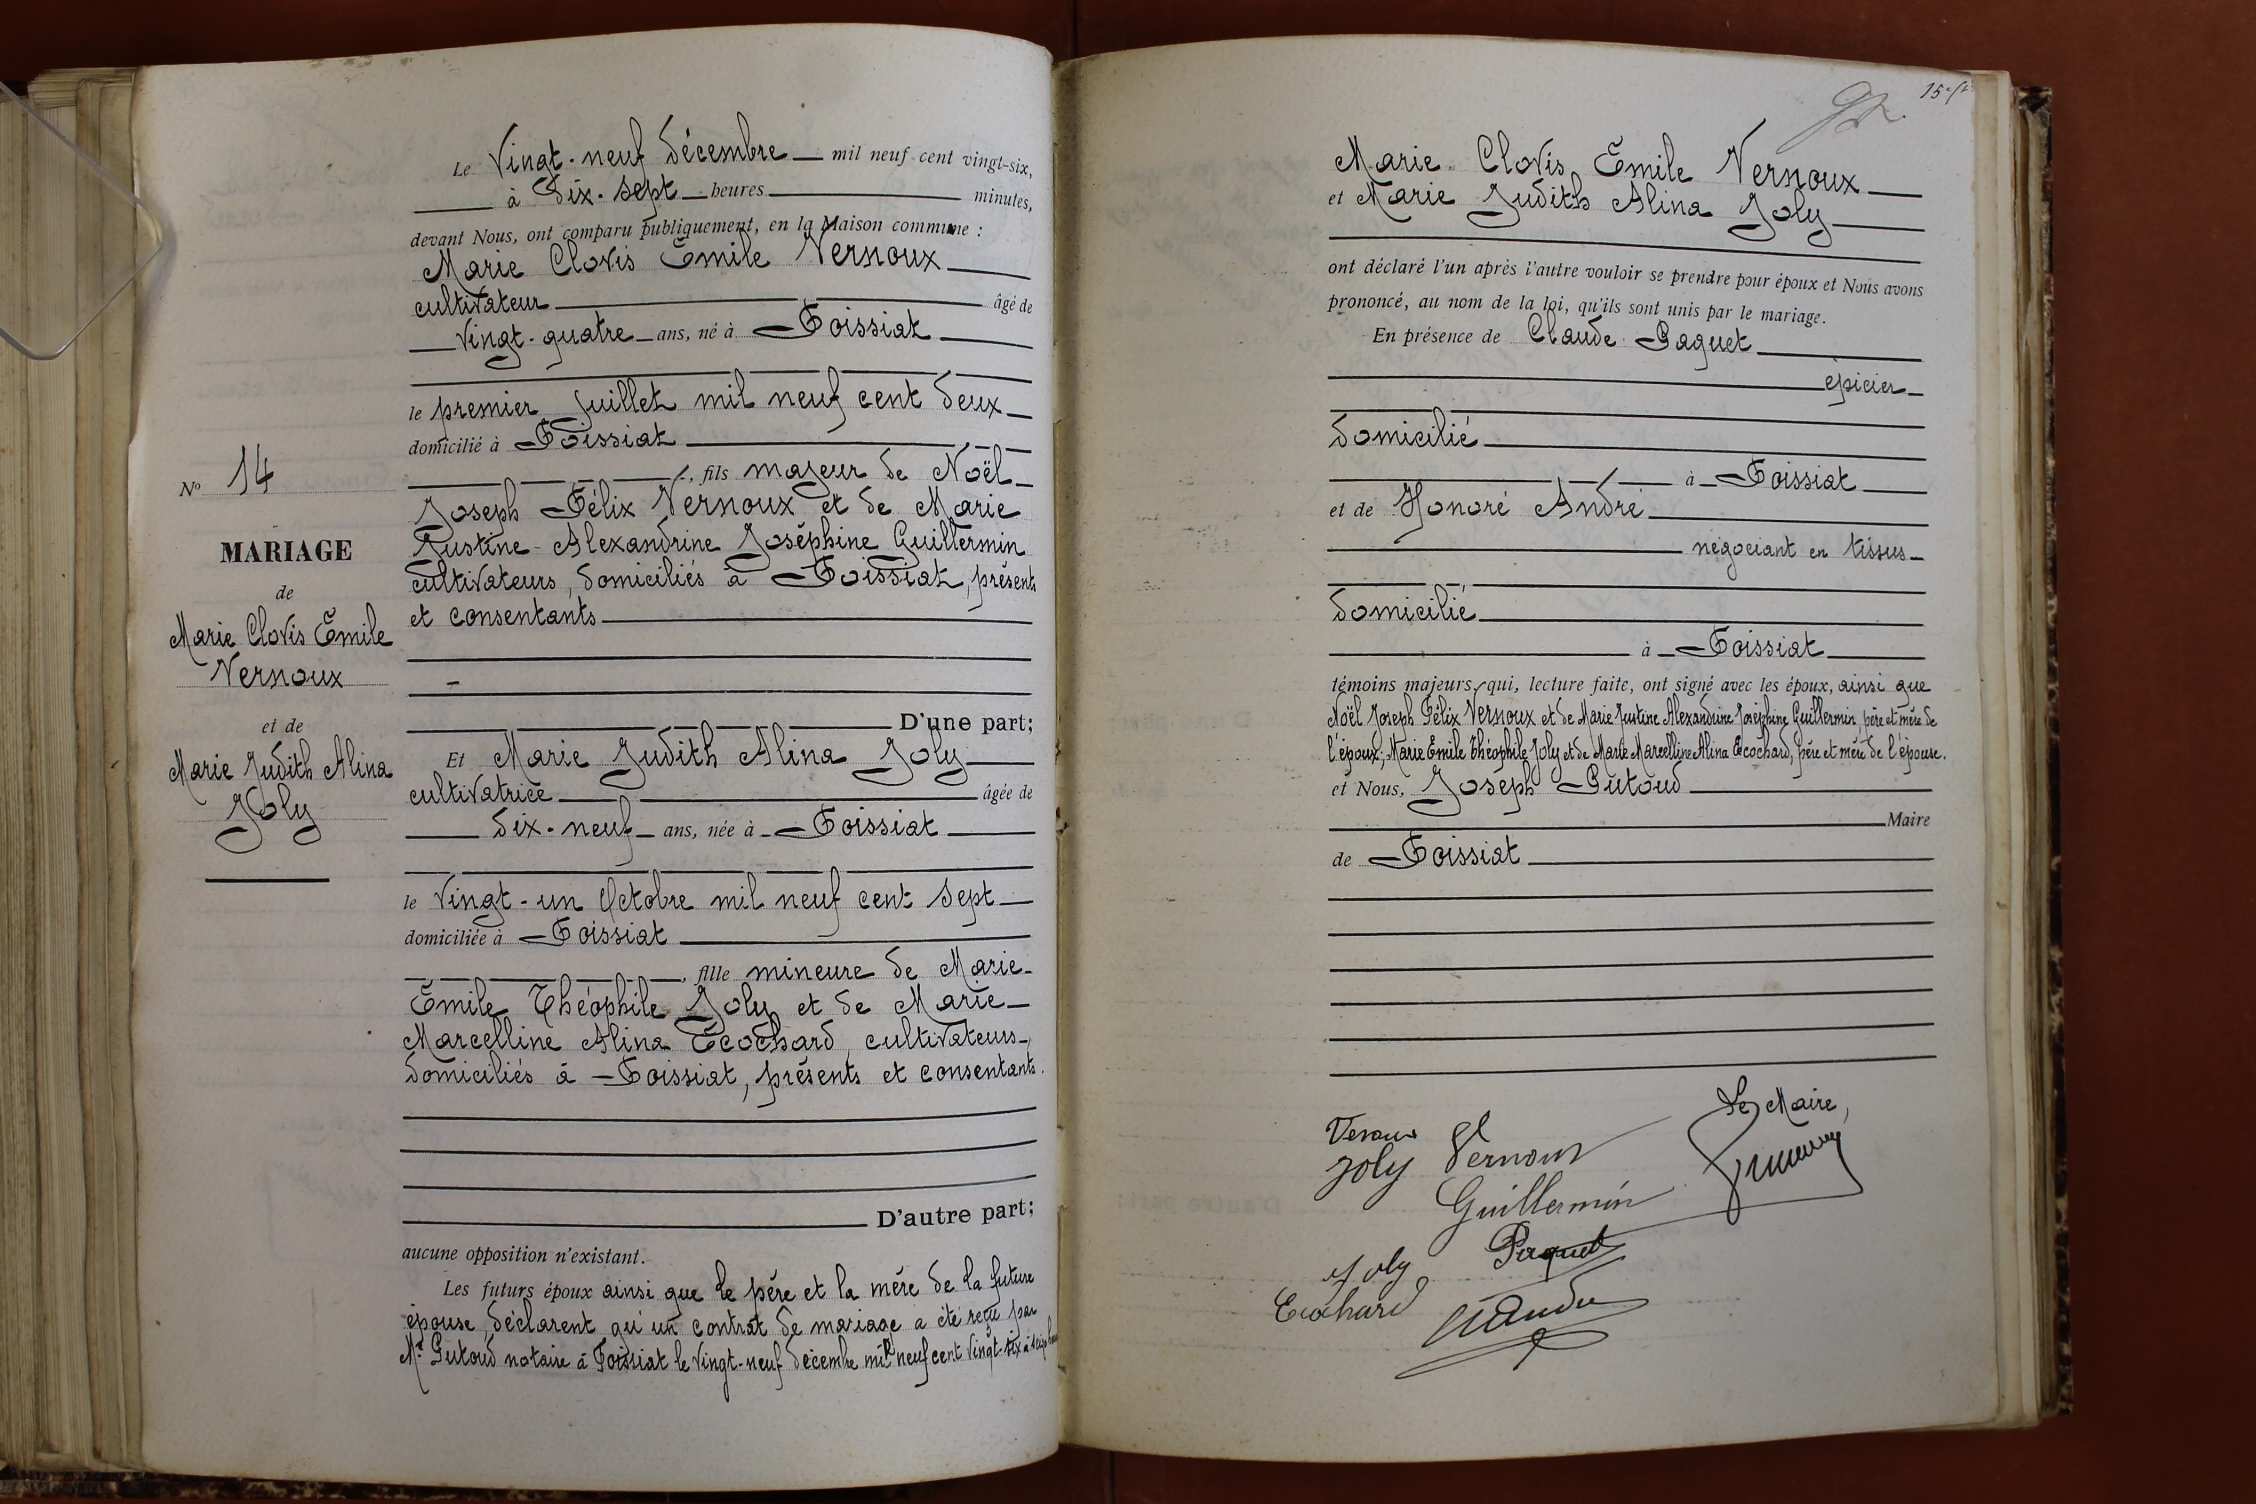 Le Vingt-neuf décembre mil neuf cent vingt-six,
à dix-sept heures minutes,
devant Nous, ont comparu publiquement, en la Maison commune :
Marie Clovis Emile Vernoux
cultivateur âgé de
vingt-quatre ans, né à Foissiat
le premier juillet mil neuf cent deux
domicilié à Foissiat
, fils majeur de Noël
Joseph Félix Vernoux et de Marie
Justine Alexandrine Joséphine Guillermin
cultivateurs, domiciliés à Foissiat, présents
et consentants
D'une part;
Et Marie Judith Alina Joly
cultivatrice âgée de
dix-neuf ans, née à Foissiat
le vingt-un Octobre mil neuf cent sept
domiciliée à Foissiat
, fille mineure de Marie
Emile Théophile Joly et de Marie
Marcelline Alina Ecochard, cultivateurs
domiciliés à Foissiat, présents et consentants.
D'autre part;
aucune opposition n'existant.
Les futurs époux ainsi que le père et la mère de la future
épouse, déclarent qu'un contrat de mariage a été reçu par
Me Putoud notaire à Foissiat le vingt-neuf décembre mil neuf cent vingt-six à
No 14
MARIAGE
de
Marie Clovis Emile
Vernoux
et de
Marie Judith Alina
Joly
15
Marie Clovis Emile Vernoux
et Marie Judith Alina Joly
ont déclaré l'un après l'autre vouloir se prendre pour époux et Nous avons
prononcé, au nom de la loi, qu'ils sont unis par le mariage.
En présence de Claude Paquet
épicier
domicilié
à Foissiat
et de Honoré André
négociant en tissus
domicilié
à Foissiat
témoins majeurs, qui, lecture faite, ont signé avec les époux, ainsi que
Noël Joseph Félix Vernoux et de Marie Justine Alexandrine Joséphine Guillermin, père et mère de
l'époux; Marie Emile Théophile Joly et de Marie Marcelline Alina Ecochard, père et mère de l'épouse.
et Nous, Joseph Putoud
Maire
de Foissiat
Le Maire,
Vernoux
Joly
Guillermin
Paquet
Joly
Ecochard